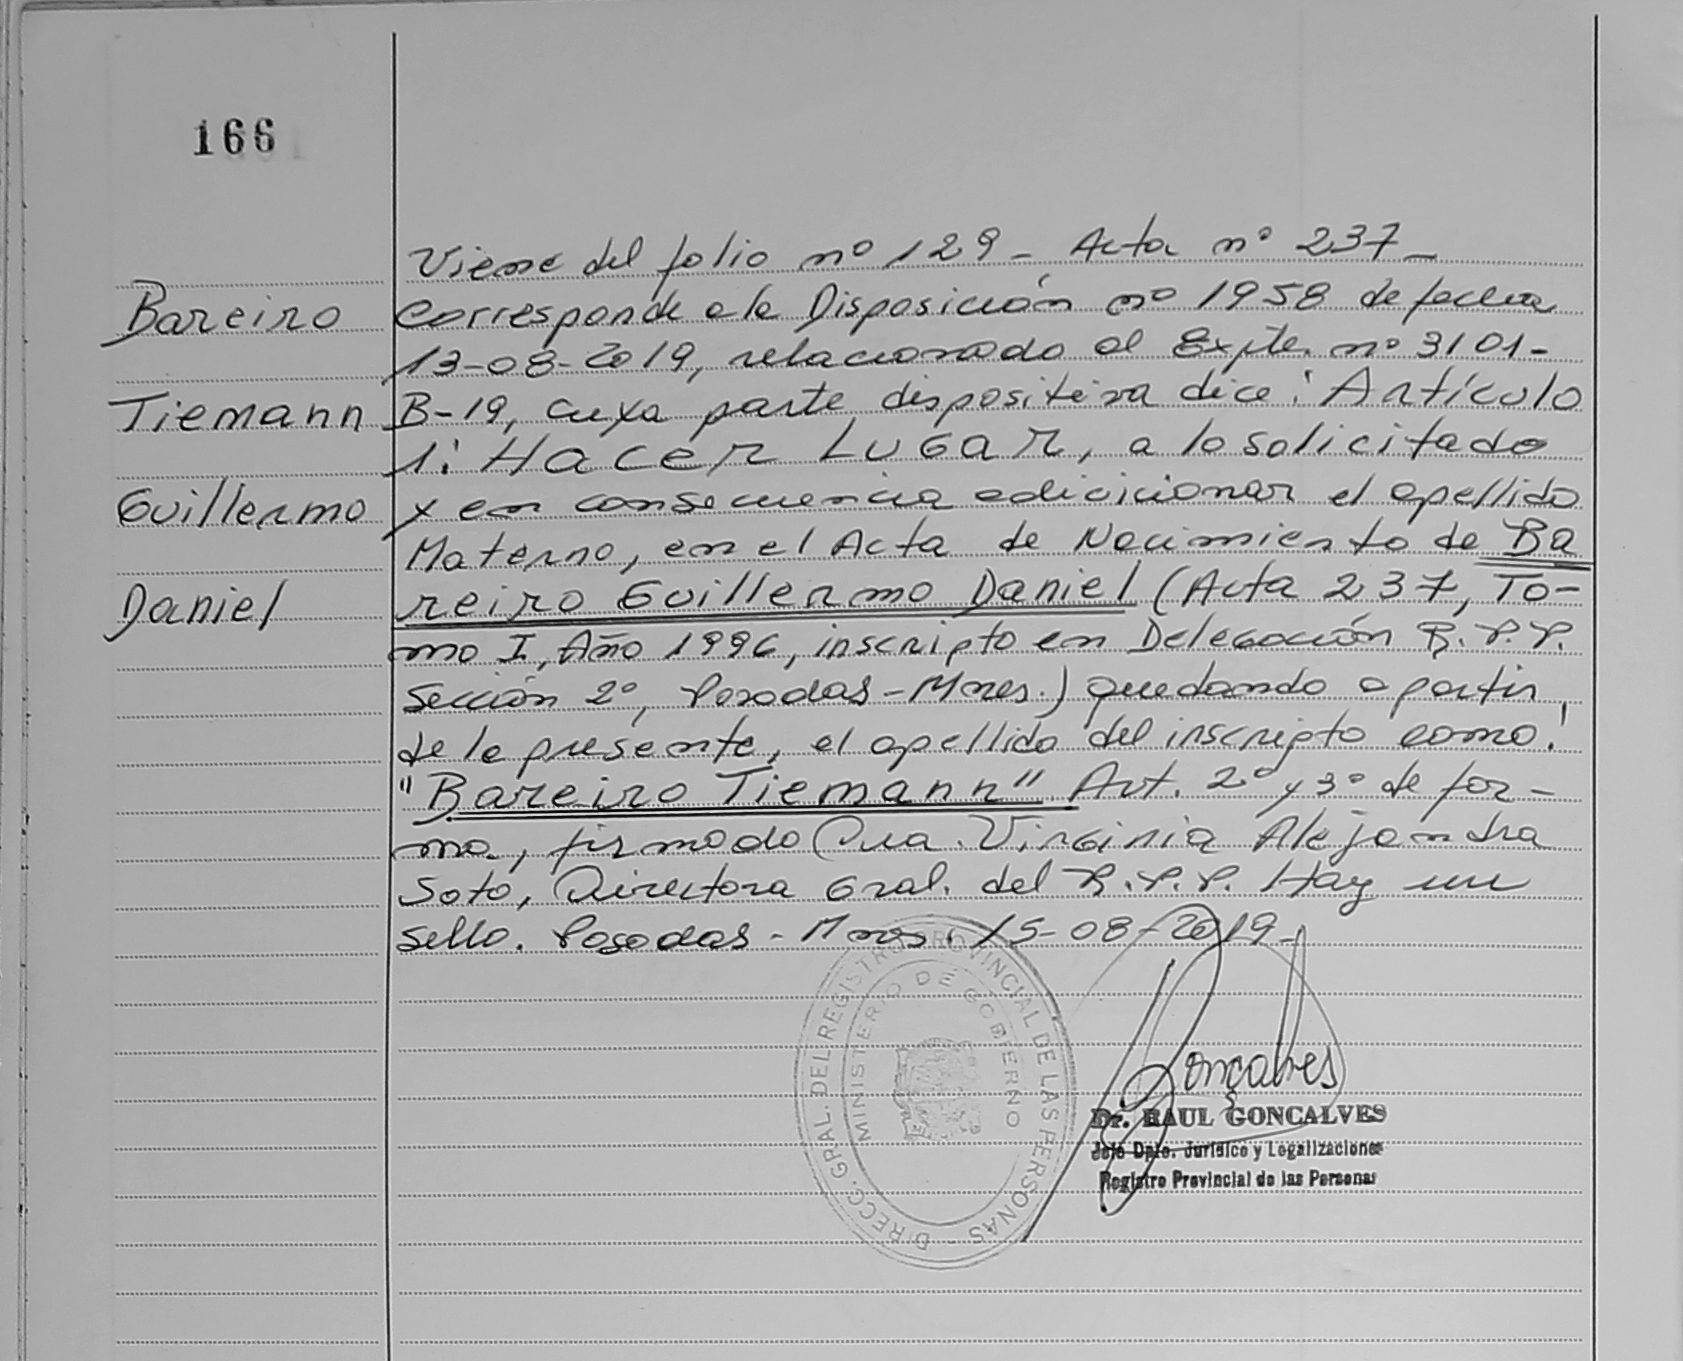 166
Bareiro
Tiemann
Guillermo
Daniel
Viene del folio nº 129 - Acta nº 237 -
Corresponde a la Disposición nº 1958 de fecha
13-08-2019, relacionado al Expte. nº 3101-
B-19, cuya parte dispositiva dice: Artículo
1: HACER LUGAR, a lo solicitado
y en consecuencia adicicionar el apellido
Materno, en el Acta de Nacimiento de Ba
reiro Guillermo Daniel (Acta 237, To-
mo I, Año 1996, inscripto en Delegación R.P.P.
Sección 2º, Posadas - Mnes.) quedando a partir
de la presente, el apellido del inscripto como:
"Bareiro Tiemann" Art. 2º y 3º de for-
ma, firmado Dra. Virginia Alejandra
Soto, Directora Gral. del R.P.P. Hay un
sello. Posadas - Mnes. 15-08-2019 -
DIRECC. GRAL. DEL REGISTRO PROVINCIAL DE LAS PERSONAS -
MINISTERIO DE GOBIERNO
Gonçalves
Dr. RAUL GONÇALVES
Jefe Dpto. Jurísico y Legalizaciones
Registro Provincial de las Personas